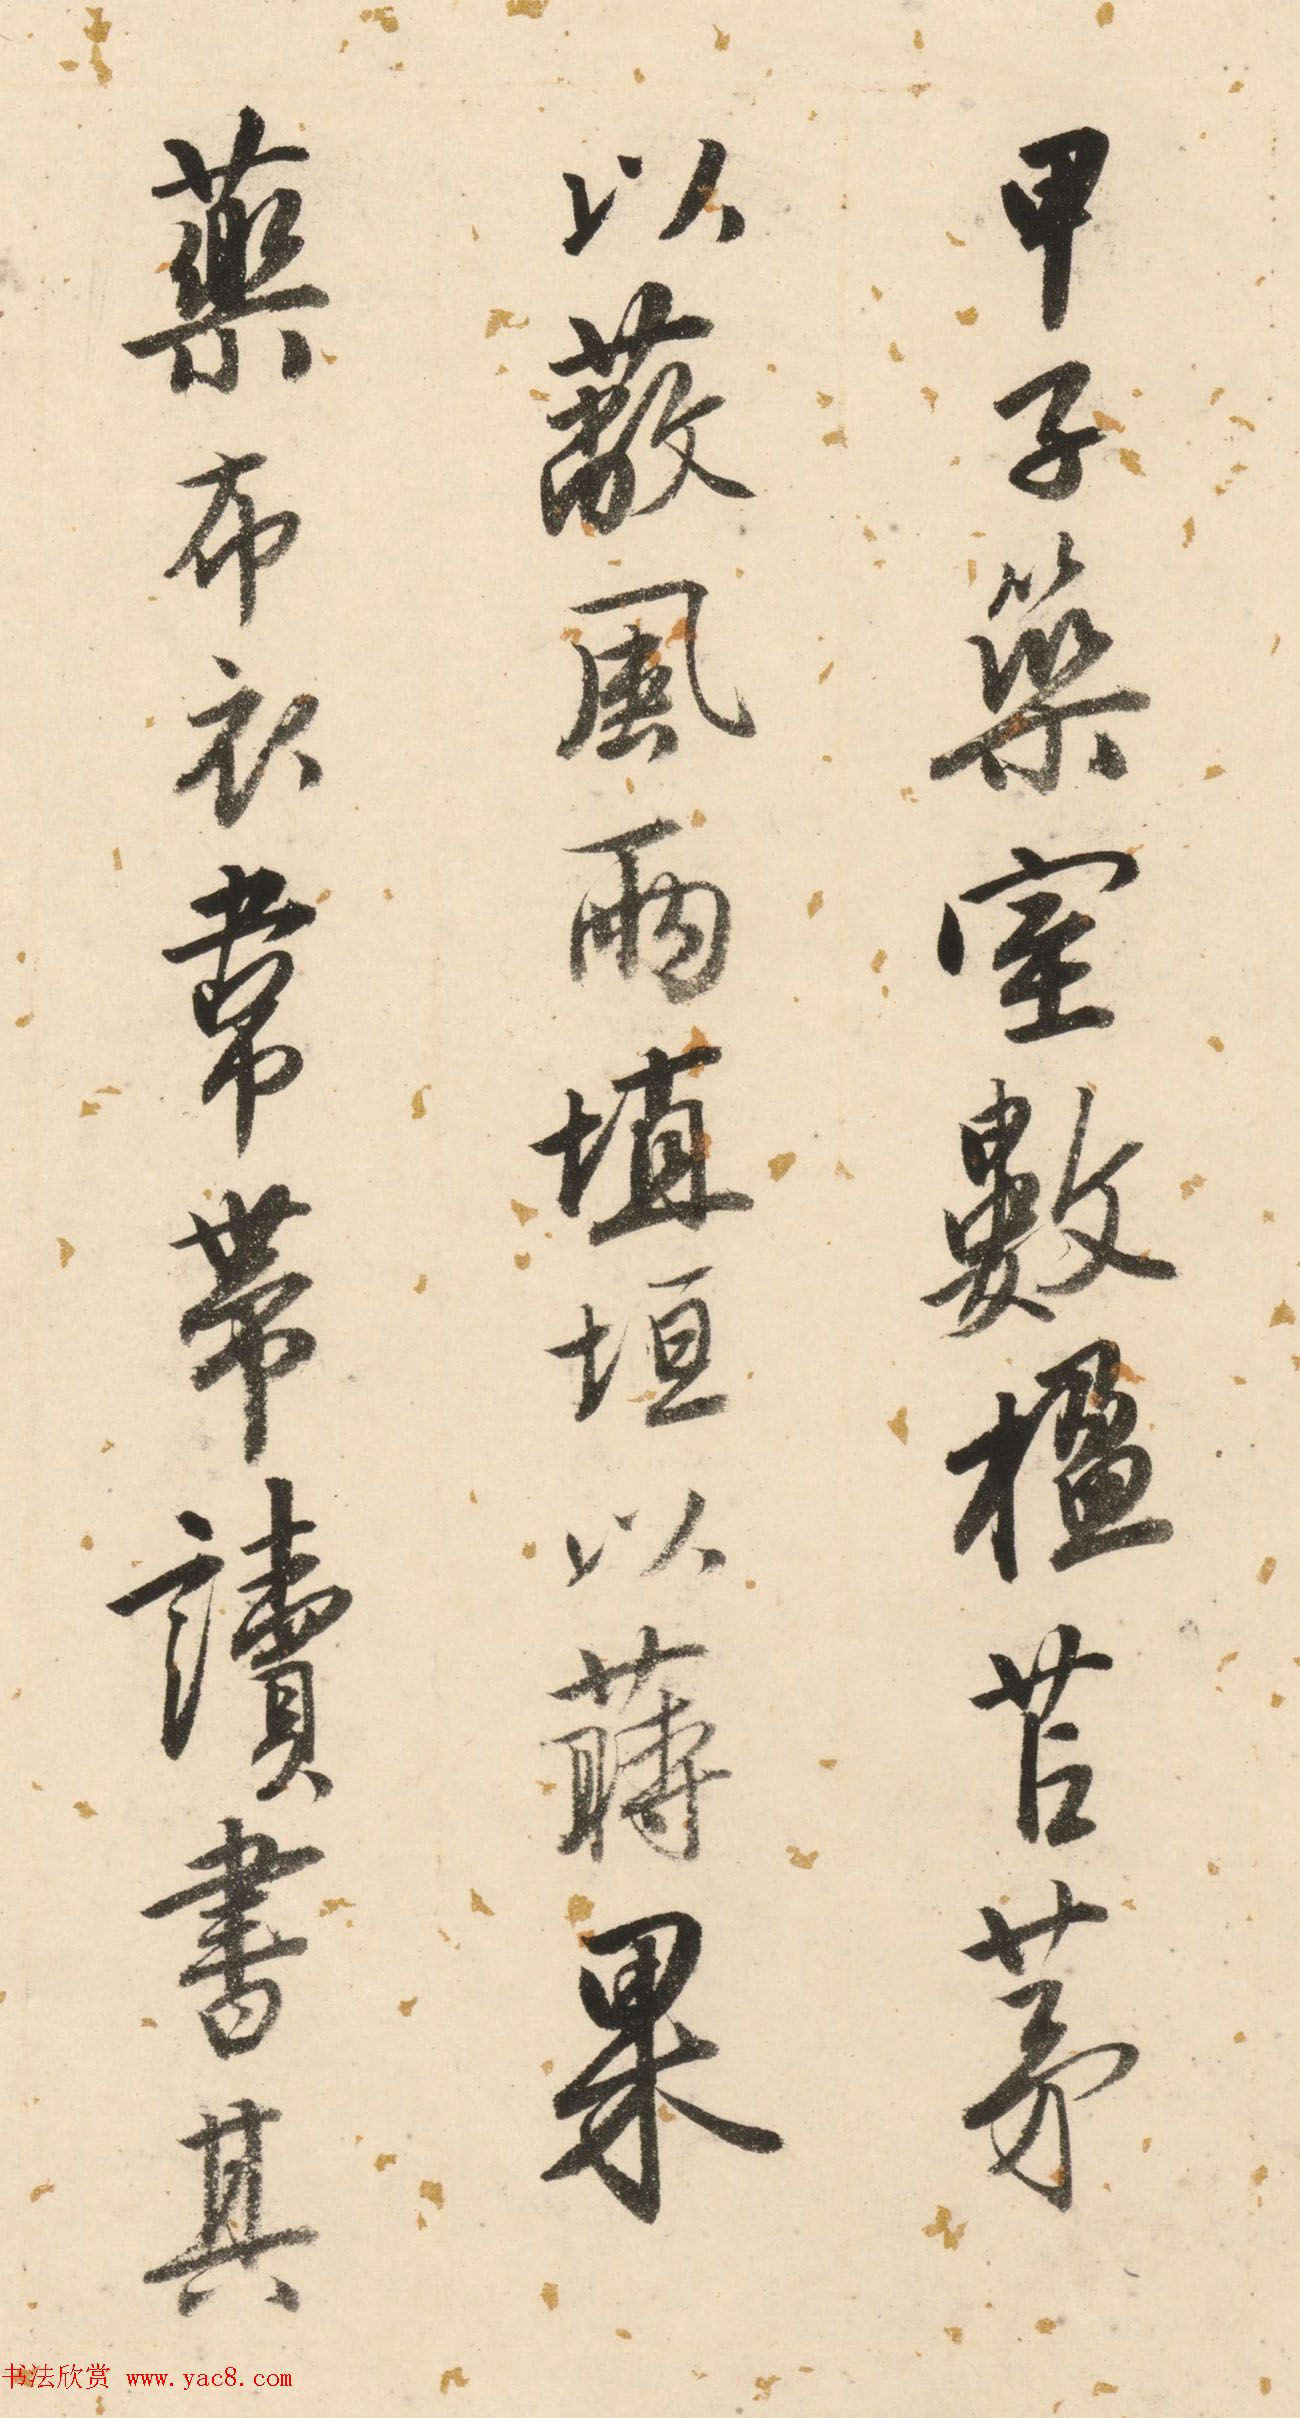 甲子築室數楹苫茅
以蔽風雨埴垣以蒔果
藥布衣韋帶讀書其
书法欣赏 www.yac8.com